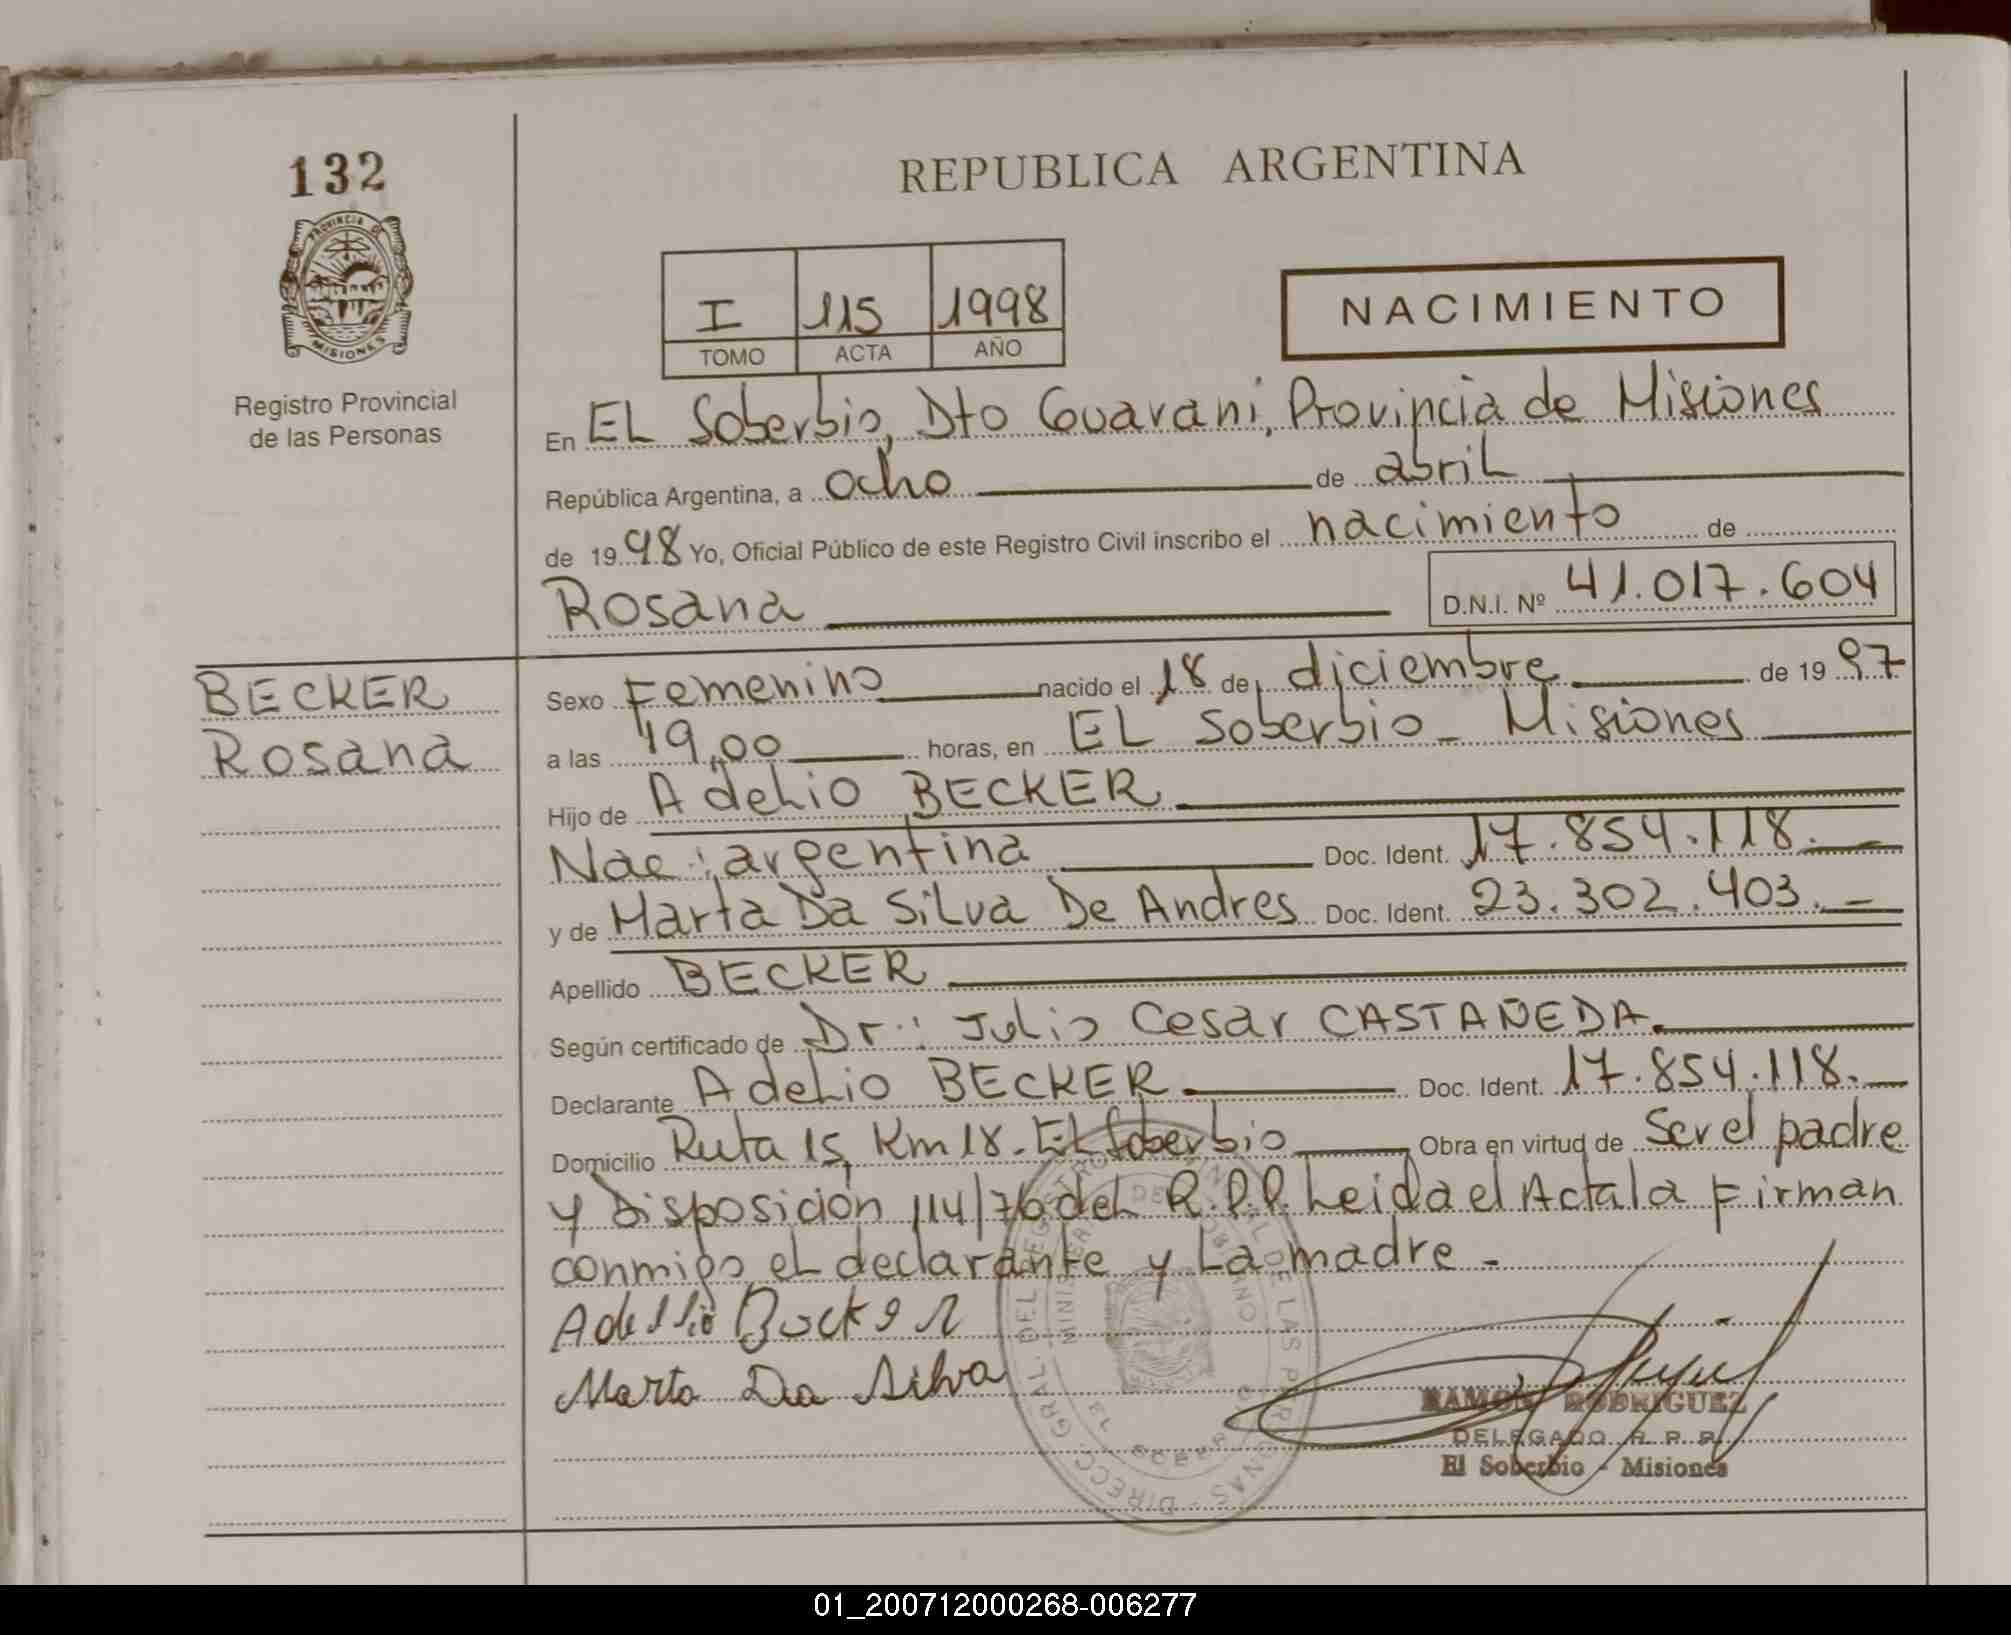 132
PROVINCIA DE
MISIONES
Registro Provincial
de las Personas
REPUBLICA ARGENTINA
I 115 1998
TOMO ACTA AÑO
NACIMIENTO
En EL Soberbio, Dto Guarani, Provincia de Misiones
República Argentina, a ocho de abril
de 1998 Yo, Oficial Público de este Registro Civil inscribo el nacimiento de
Rosana D.N.I. Nº 41.017.604
BECKER
Rosana
Sexo Femenino nacido el 18 de diciembre de 1997
a las 19,00 horas, en EL Soberbio - Misiones
Hijo de Adelio BECKER
Nac: argentina Doc. Ident. 17.854.118.-
y de Marta Da Silva De Andres Doc. Ident. 23.302.403.-
Apellido BECKER
Según certificado de Dr: Julio Cesar CASTAÑEDA.
Declarante Adelio BECKER Doc. Ident. 17.854.118.
Domicilio Ruta 15, Km 18 - EL Soberbio Obra en virtud de Ser el padre
y Disposición 114/76 del R.P.P. Leida el Acta la Firman
conmigo el declarante y La madre -
Adellio Becker
Marta Da Silva
RAMON RODRIGUEZ
DELEGADO R. P. P.
El Soberbio - Misiones
01_200712000268-006277